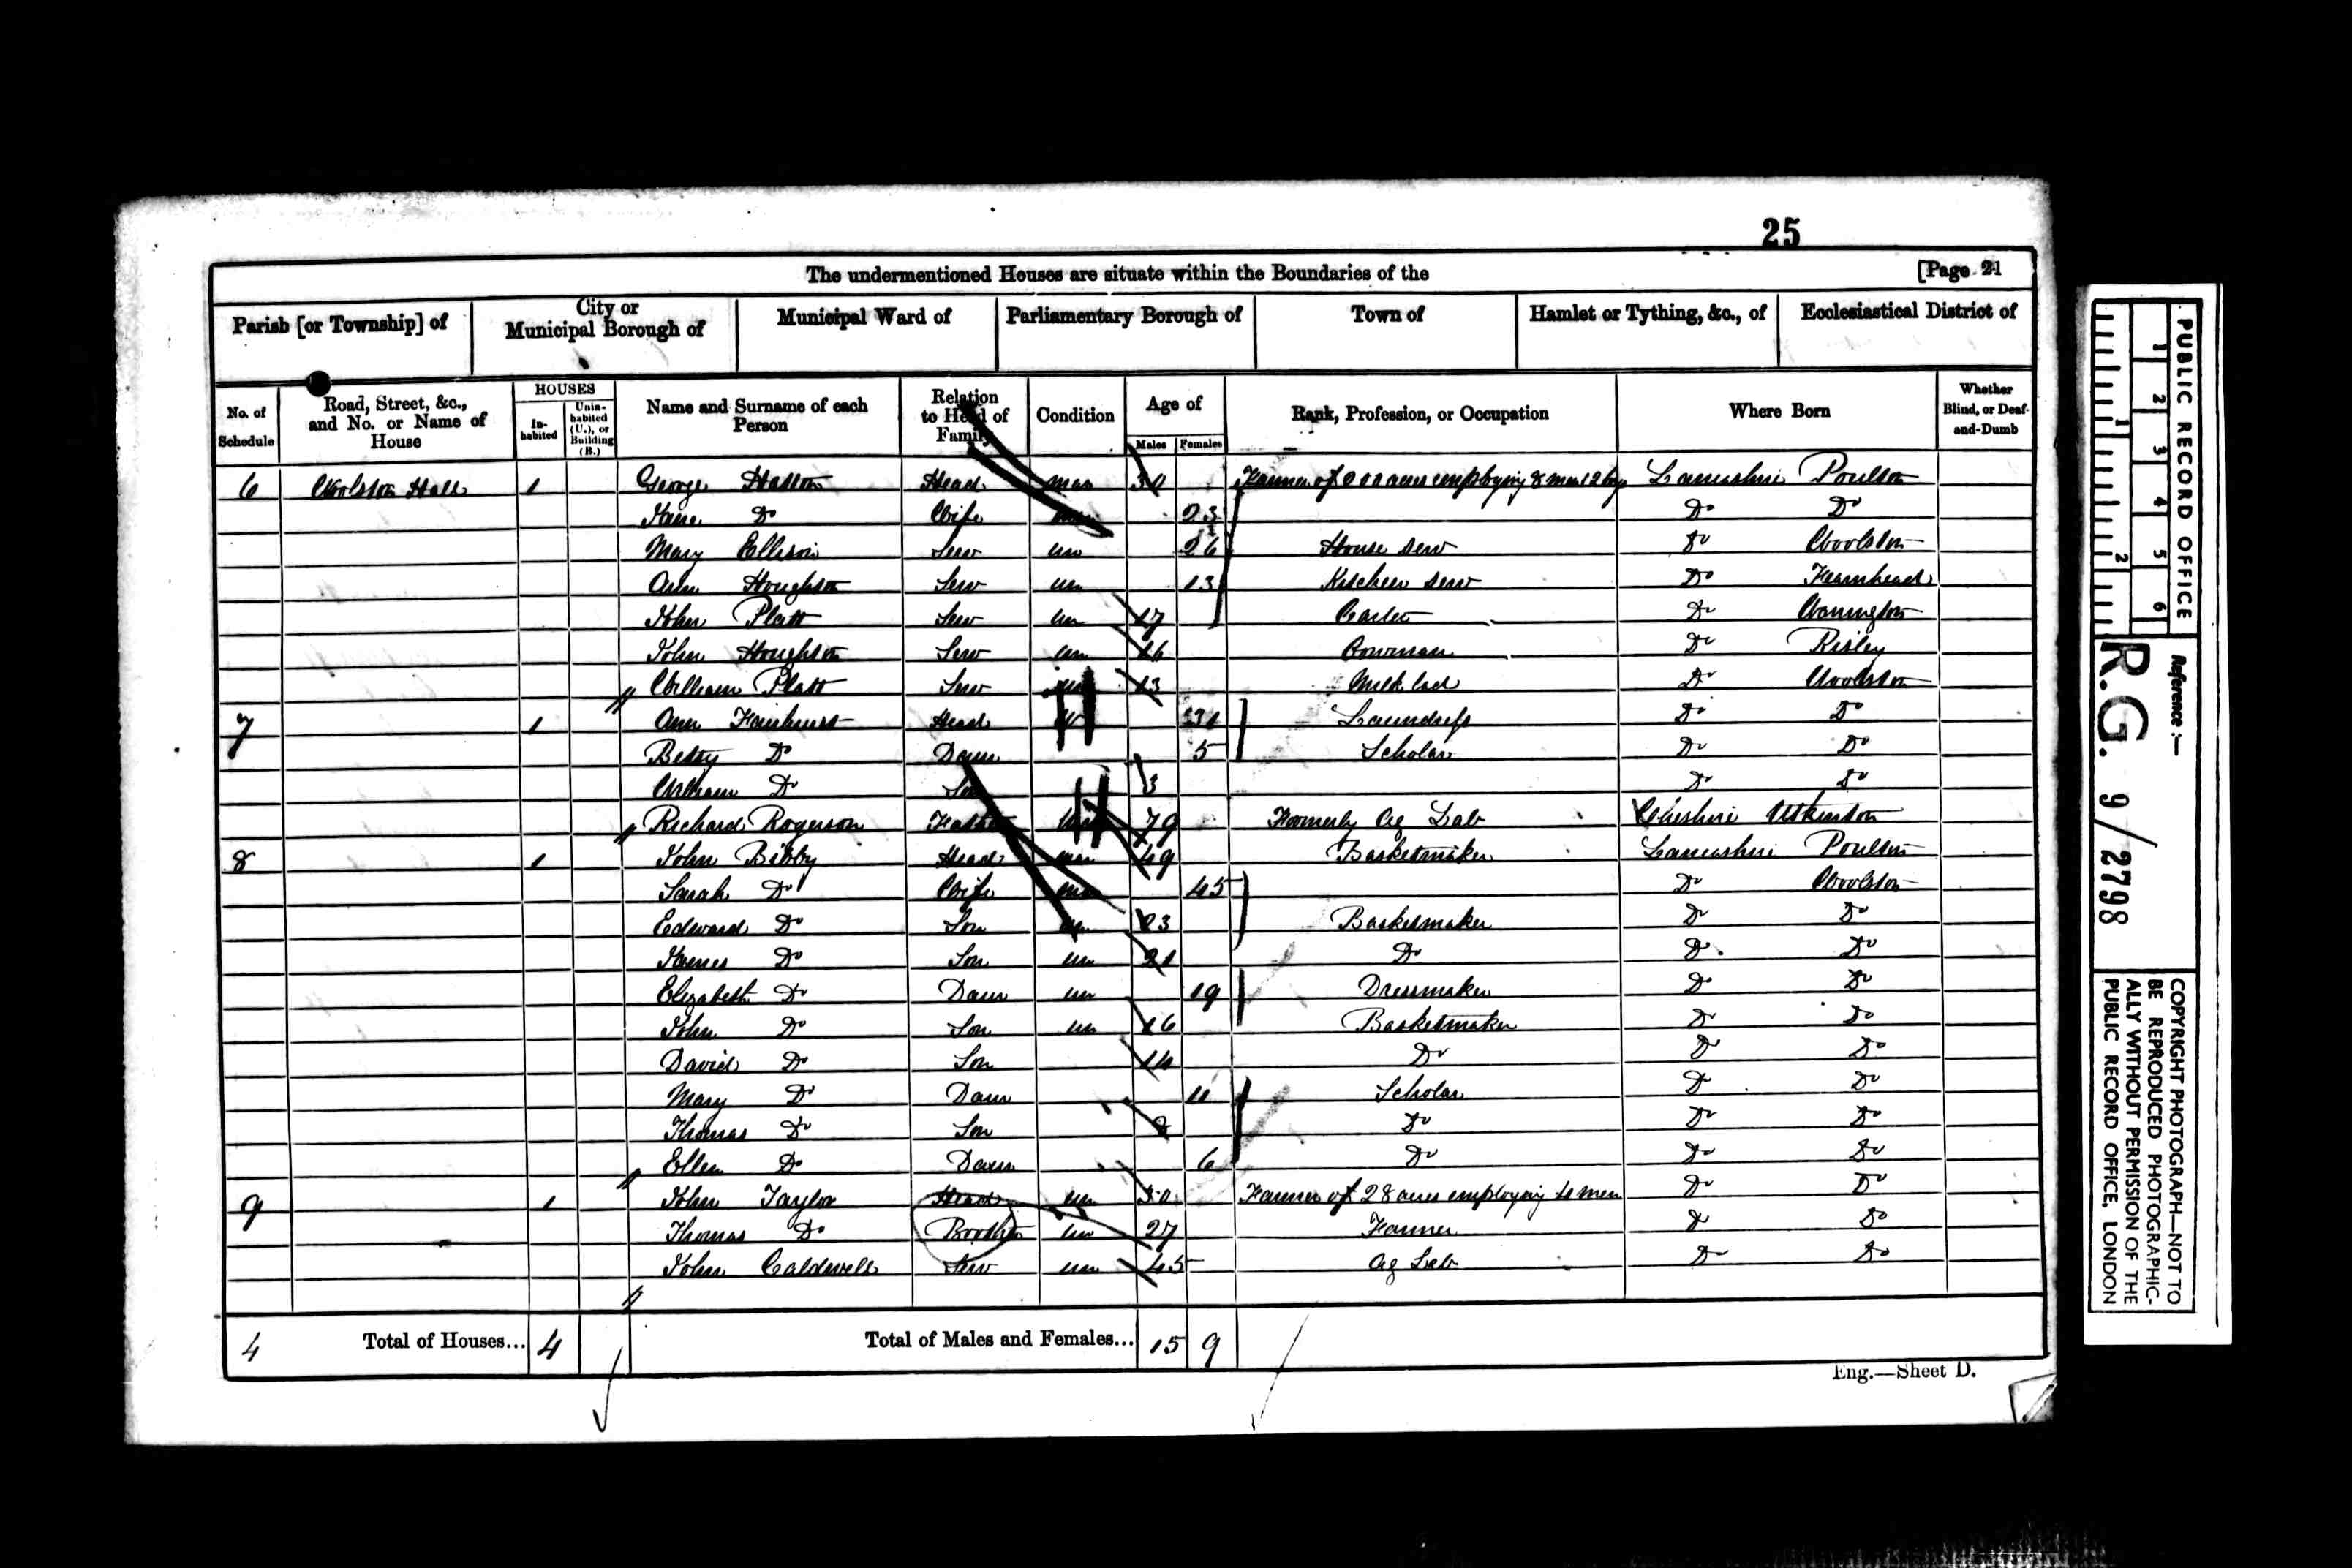 25
The undermentioned Houses are situate within the Boundaries of the [Page 21
Parish [or Township] of City or Municipal Borough of Municipal Ward of Parliamentary Borough of Town of Hamlet or Tything, &c., of Ecclesiastical District of
No. of Schedule Road, Street, &c., and No. or Name of House HOUSES In-habited Unin-habited (U.), or Building (B.) Name and Surname of each Person Relation to Head of Family Condition Age of Males Females Rank, Profession, or Occupation Where Born Whether Blind, or Deaf-and-Dumb
6 Woolston Hall 1 George Hatton Head mar 30 Farmer of acres employing 8 men 2 boys Lancashire Poulton
Jane Do Wife mar 23 Do Do
Mary Ellison Serv un 26 House Serv Do Woolston
Ann Houghton Serv un 13 Kitchen Serv Do Fearnhead
John Platt Serv un 17 Carter Do Warrington
John Houghton Serv un 16 Cowman Do Risley
William Platt Serv un 13 Milk lad Do Woolston
7 1 Ann Fairhurst Head W 31 Laundress Do Do
Betsy Do Daur 5 Scholar Do Do
William Do Son 3 Do Do
Richard Rogerson Father 79 Formerly Ag Lab Cheshire
8 1 John Bibby Head mar 49 Basketmaker Lancashire Poulton
Sarah Do Wife mar 45 Do Woolston
Edward Do Son un 23 Basketmaker Do Do
James Do Son un 21 Do Do Do
Elizabeth Do Daur un 19 Dressmaker Do Do
John Do Son un 16 Basketmaker Do Do
David Do Son 14 Do Do Do
Mary Do Daur 11 Scholar Do Do
Thomas Do Son 8 Do Do Do
Ellen Do Daur 6 Do Do Do
9 1 John Taylor Head un 30 Farmer of 28 acres employing 4 men Do Do
Thomas Do Brother un 27 Farmer Do Do
John Caldwell Serv un 45 Ag Lab Do Do
4 Total of Houses... 4 Total of Males and Females... 15 9
Eng.—Sheet D.
1 2 3 4 5 6
1 2
PUBLIC RECORD OFFICE
Reference :—
R.G. 9/2798
COPYRIGHT PHOTOGRAPH—NOT TO
BE REPRODUCED PHOTOGRAPHIC-
ALLY WITHOUT PERMISSION OF THE
PUBLIC RECORD OFFICE, LONDON